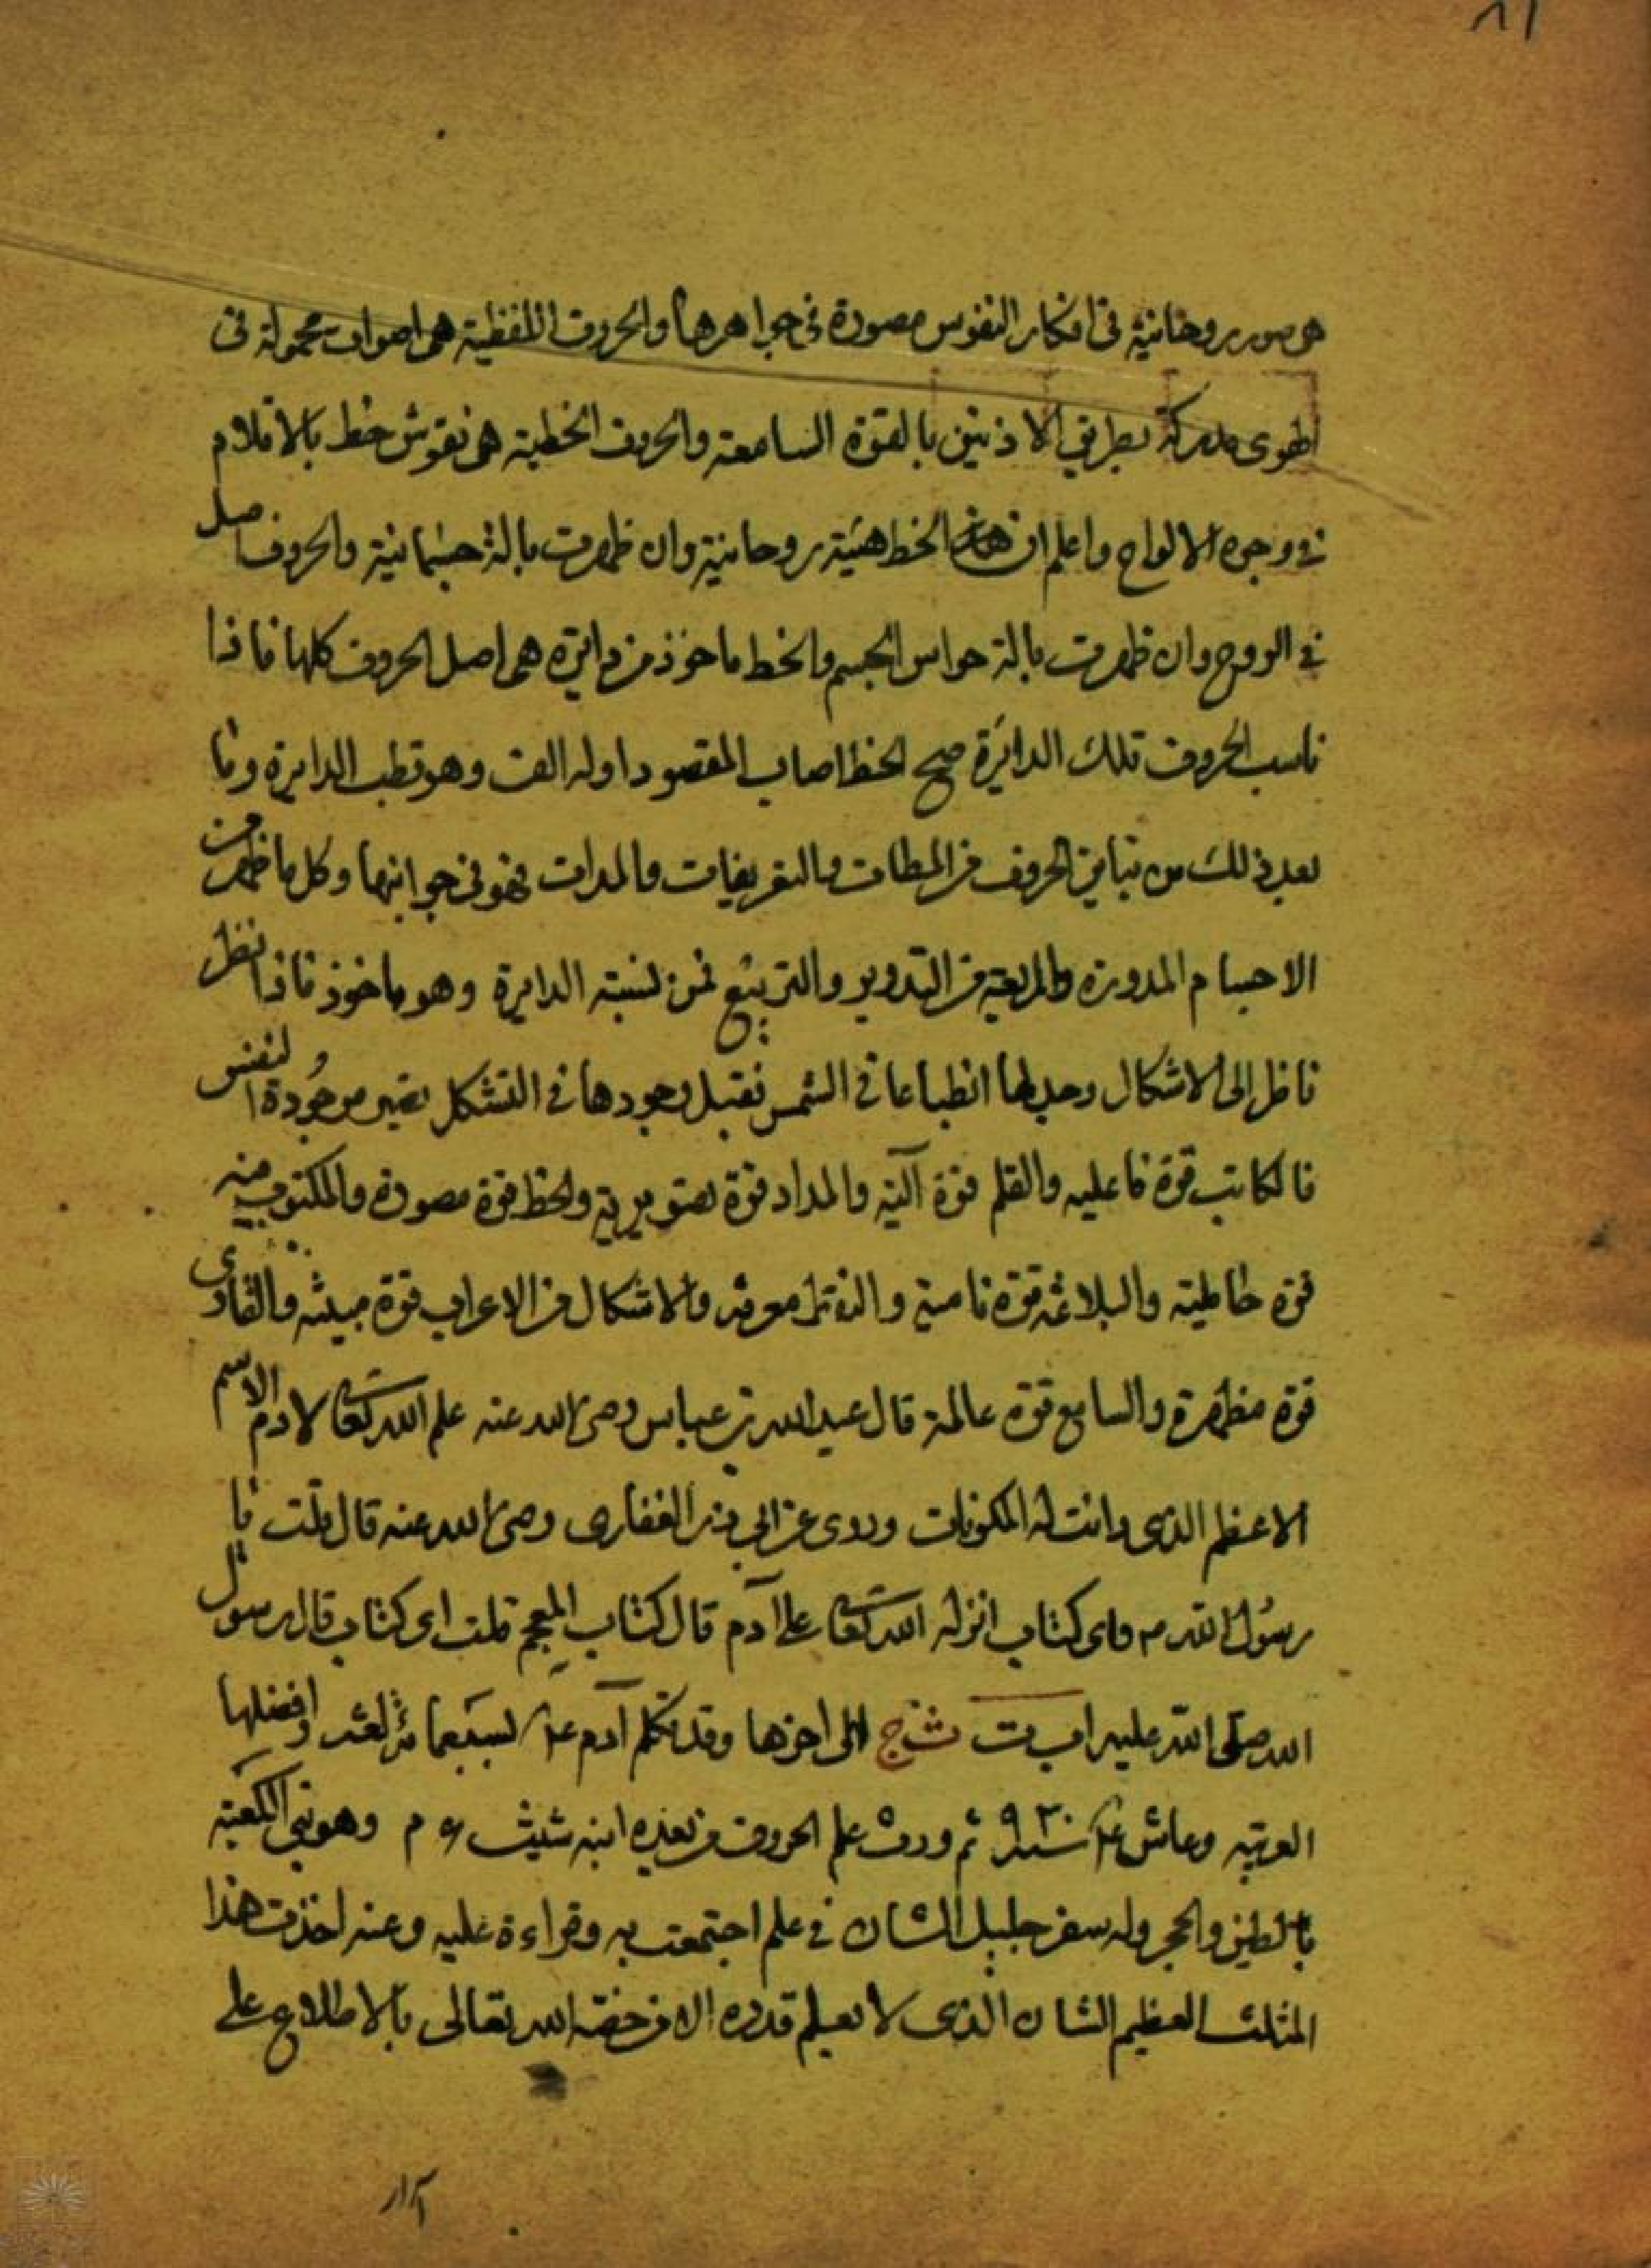 ١٦
هى صور روحانية فى افكار النفوس مصورة فى جواهرها والحروف اللفظية هى اصوات محمولة فى
الهوى مدركة بطريق الاذنين بالقوة السامعة والحروف الخطية هى نقوش خط بالاقلام
فى وجوه الالواح واعلم ان هذا الخط هيئة روحانية وان ظهرت بالة جسمانية والحروف اصل
فى الروح وان ظهرت بالة حواس الجسم والخط ماخوذ من دائرة هى اصل الحروف كلها فاذا
ناسب الحروف تلك الدائرة صح الخط اصاب المقصود اوله الف وهو قطب الدايرة وما
بعد ذلك من تباين الحروف من المطات والتعريفات والمدات فهو فى جوانبها وكل ما ظهر من
الاجسام المدورة والمربعة من التدوير والتربيع فمن نسبة الدايرة وهو ماخوذ فاذا نظر
ناظر الى الاشكال وجد لها انطباعا فى الشمس نقبل وجودها فى التشكل موجودة النفس
فالكاتب قوة فاعليه والقلم قوة آلية والمداد قوة تصويرية والخط قوة مصورة والمكتوب منه
قوة والبلاغة قوة نامية والاشكال من الاعراب قوة مبينه والقارى
قوة مظهرة والسامع قوة عالمة قال عبد الله بن عباس رضى الله عنه علم الله تعالى لادم الاسم
الاعظم الذى دانت له المكونات وروى عن ابى ذر الغفارى رضى الله عنه قال قلت يا
رسول الله م واى كتاب انزله الله تعالى على آدم قال كتاب المعجم قلت اى كتاب قال رسول
الله صلى الله عليه ا ب ت ث ج الى اخرها وقد تكلم آدم ع بسبعمائة لغة وافضلها
العربيه وعاش ع ٩٣٠ سنة ثم ورث علم الحروف من بعده ابنه شيث ع م وهو بنى الكعبة
بالطين والحجر وله سفر جليل الشان فى علم اجتمعت به وقراءة عليه وعنه اخذت هذا
المثلث العظيم الشان الذى لا يعلم قدره الا من خصه الله تعالى بالاطلاع على